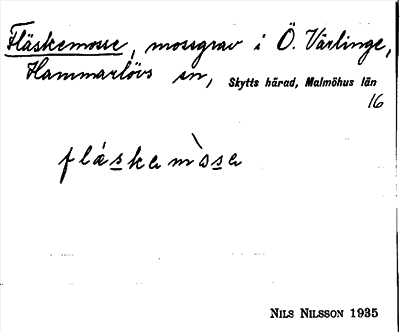 Fläskemosse, mossgrav i Ö. Värlinge,
Hammarlövs sn, Skytts härad, Malmöhus län
16
fláskemòsa
NILS NILSSON 1935